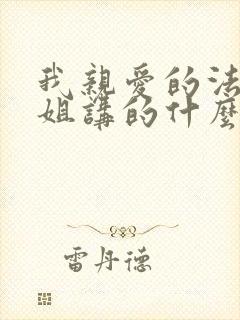 我親愛的法
姐講的什麼
雷丹德